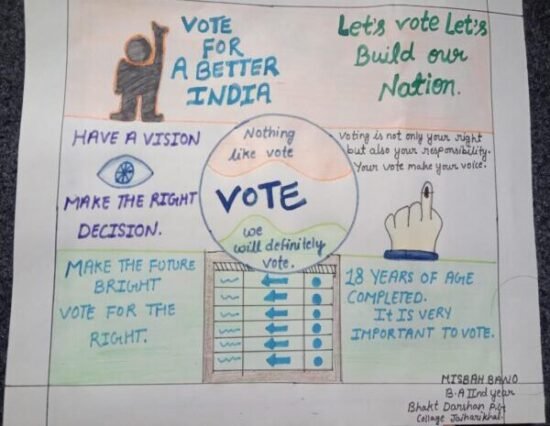 VOTE
FOR
A BETTER
INDIA
Let's vote Let's
Build our
Nation.
HAVE A VISION
MAKE THE RIGHT
DECISION.
Nothing
like vote
VOTE
we
will definitely
vote.
Voting is not only your right
but also your responsibility.
Your vote make your voice.
MAKE THE FUTURE
BRIGHT
VOTE FOR THE
RIGHT.
18 YEARS OF AGE
COMPLETED.
It IS VERY
IMPORTANT TO VOTE.
MISBAH BANO
B.A IInd year
Bhakt Darshan P.G
Collage Jaiharikhal